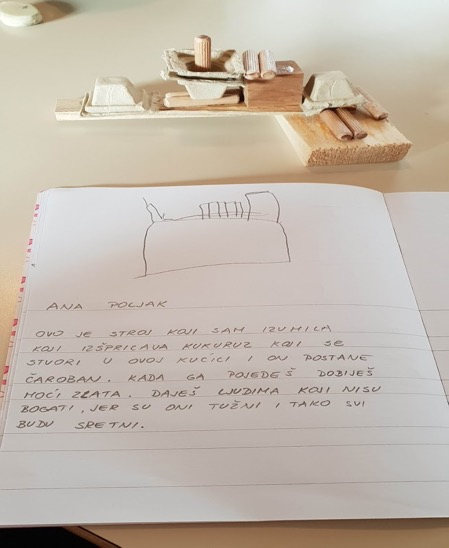 ANA POLJAK
OVO JE STROJ KOJI SAM IZUMILA
KOJI IZŠPRICAVA KUKURUZ KOJI SE
STVORI U OVOJ KUĆICI I ON POSTANE
ČAROBAN. KADA GA POJEDEŠ DOBIJEŠ
MOĆI ZLATA. DAJEŠ LJUDIMA KOJI NISU
BOGATI, JER SU ONI TUŽNI I TAKO SVI
BUDU SRETNI.